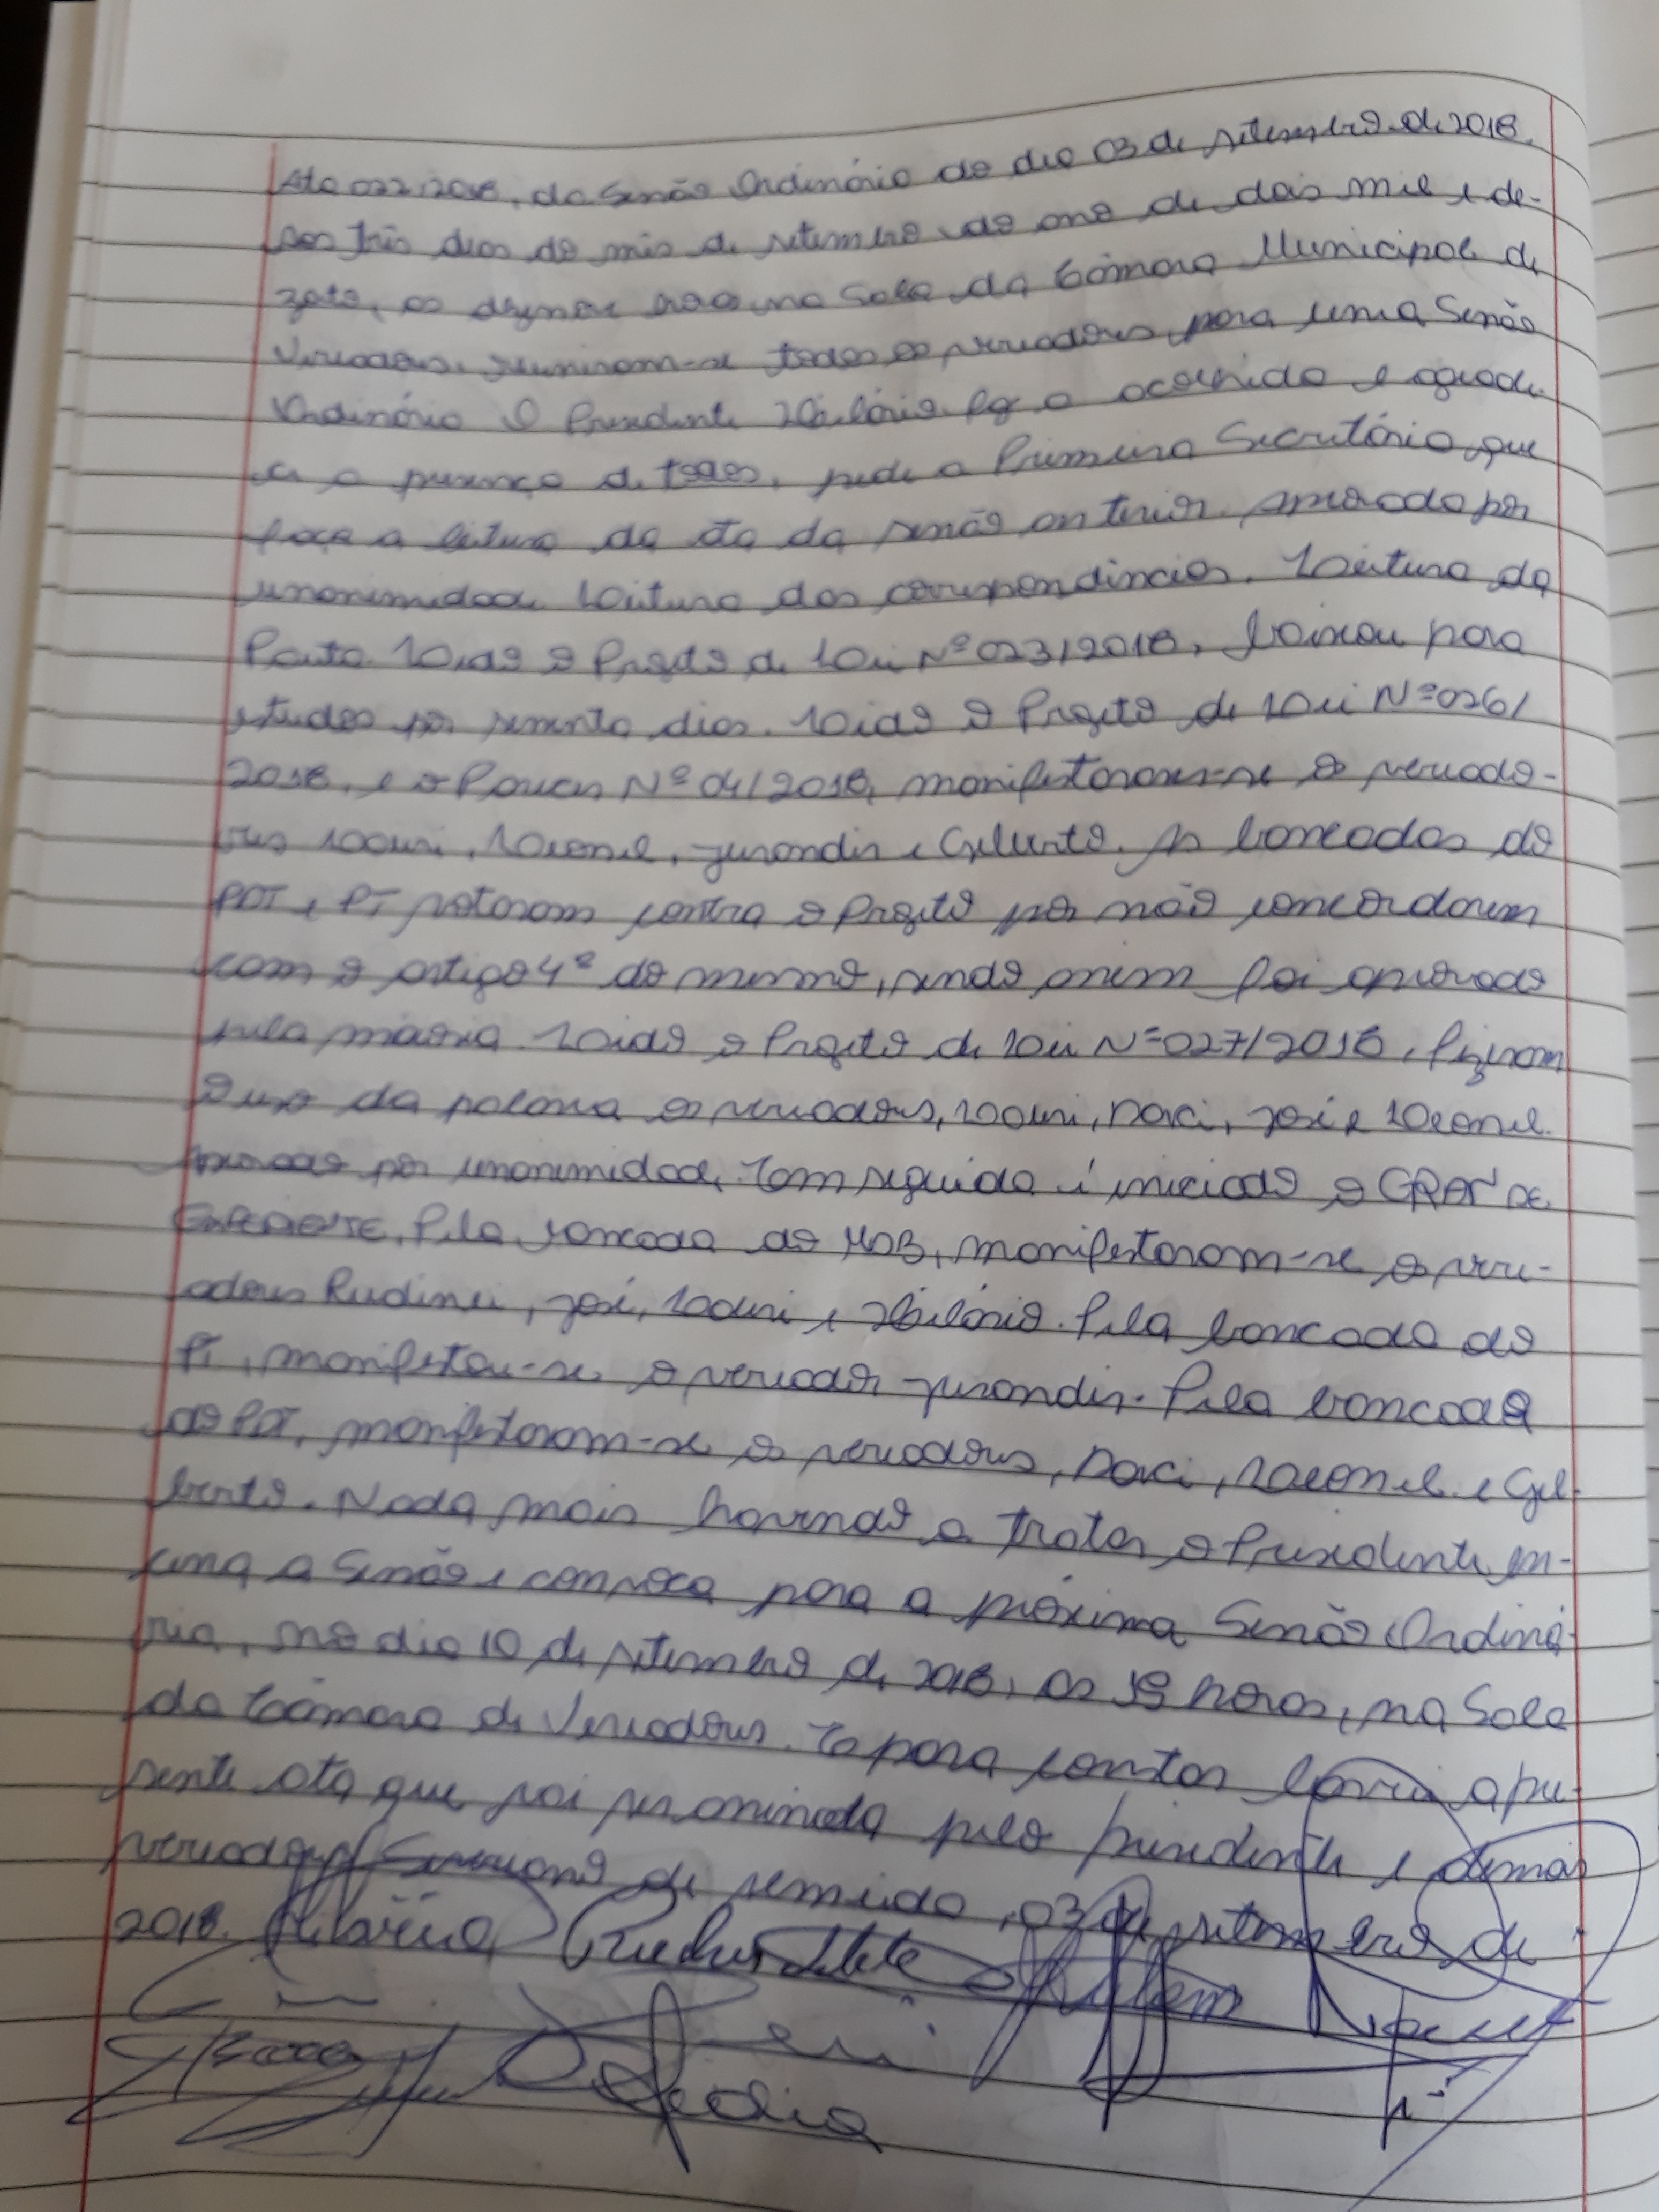 Ata 022/2018, da Sessão Ordinária do dia 03 de setembro de 2018.
Aos três dias do mês de setembro do ano de dois mil e de-
zoito, as dezenove horas na Sala da Câmara Municipal de
Vereadores, reuniram-se todos os vereadores, para uma Sessão
Ordinária. O Presidente Hilário faz a acolhida e agrade-
ce a presença de todos, pede a Primeira Secretária que
faça a leitura da ata da sessão anterior. Aprovada por
unanimidade. Leitura das correspondências. Leitura da
Pauta. Lido o Projeto de Lei Nº 023/2018, baixou para
estudos por sessenta dias. Lido o Projeto de Lei Nº 026/
2018, e o Parecer Nº 04/2018, manifestaram-se os vereado-
res Lauri, Leonel, Jurandir e Gilberto. As bancadas do
PDT e PT votaram contra o Projeto por não concordarem
com o artigo 4º do mesmo, sendo assim foi aprovado
pela maioria. Lido o Projeto de Lei Nº 027/2018, fizeram
o uso da palavra os vereadores, Lauri, Darci, José e Leonel.
Aprovado por unanimidade. Em seguida é iniciado o GRANDE
EXPEDIENTE. Pela bancada do MDB, manifestaram-se os vere-
adores Rudinei, José, Lauri e Hilário. Pela bancada do
PT, manifestou-se o vereador Jurandir. Pela bancada
do PDT, manifestaram-se os vereadores, Darci, Leonel e Gil-
berto. Nada mais havendo a tratar o Presidente en-
cerra a Sessão e convoca para a próxima Sessão Ordiná-
ria, no dia 10 de setembro de 2018, as 19 horas, na Sala
da Câmara de Vereadores. E para constar lavrei a pre-
sente ata que vai ser assinada pelo presidente e demais
vereadores. de setembro de
2018. Hilário